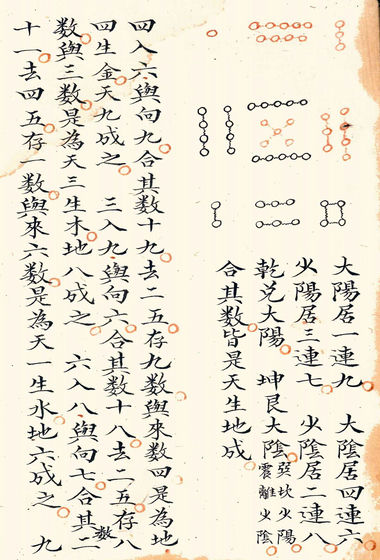 大陽居一連九　大陰居四連六
少陽居三連七　少陰居二連八
乾兌大陽　坤艮大陰　巽坎少陽　震離少陰
合其数皆是天生地成
四入六與向九合其数十九去二五存九数與來数四是為地
四生金天九成之　三入九與向六合其数十八去二五存八
数與三数是為天三生木地八成之　六入八與向七合其数二
十一去四五存一数與來六数是為天一生水地六成之　九